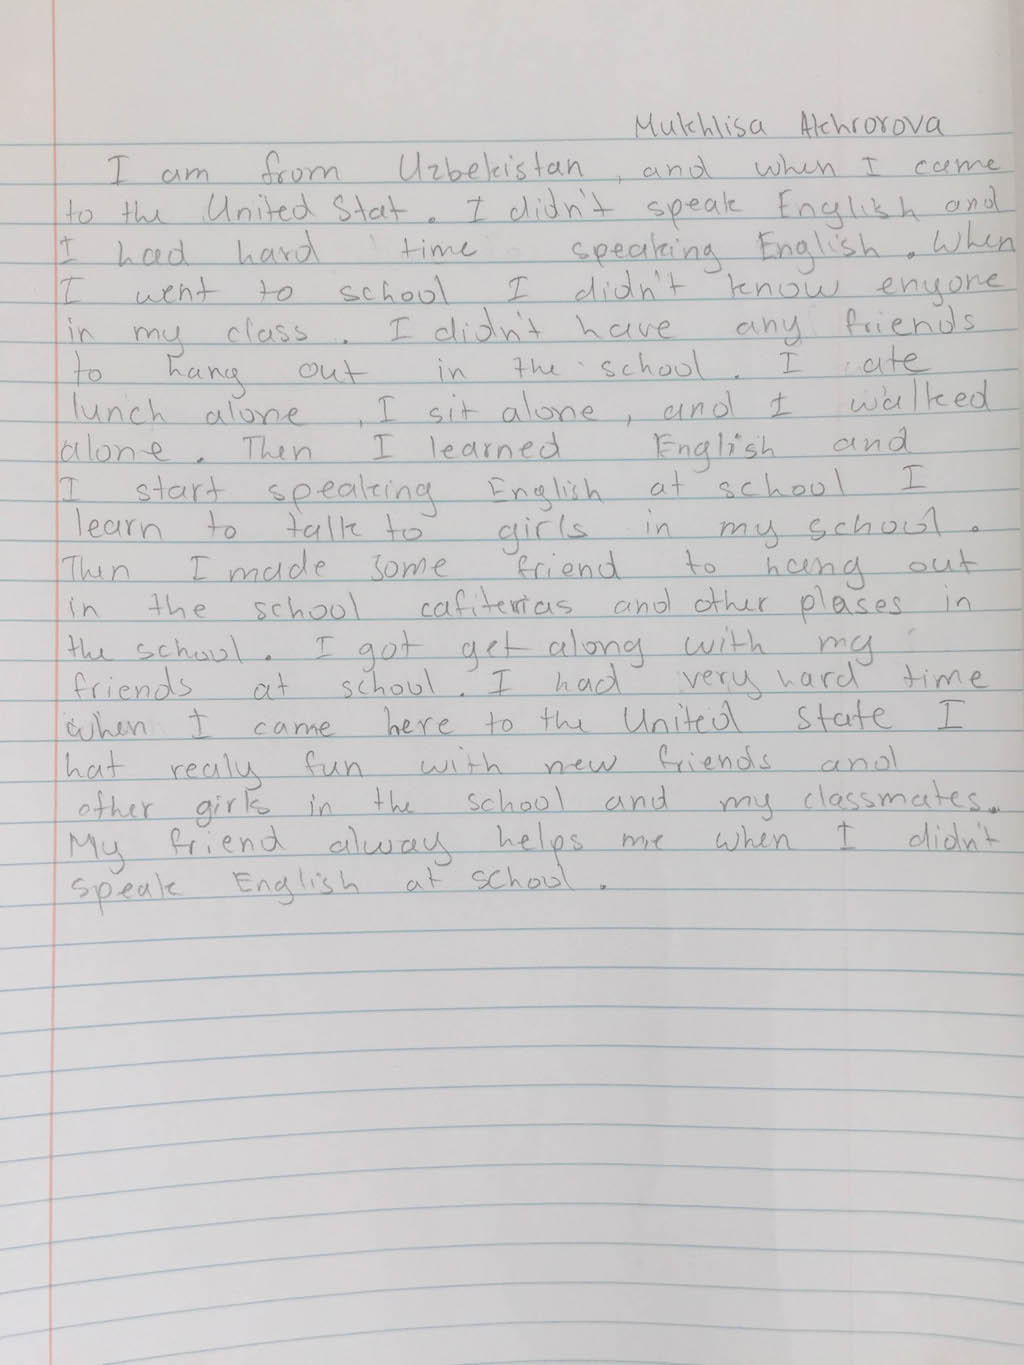 Mukhlisa Akhrorova
I am from Uzbekistan, and when I came
to the United Stat. I didn't speak English and
I had hard time speaking English. When
I went to school I didn't know enyone
in my class. I didn't have any friends
to hang out in the school. I ate
lunch alone, I sit alone, and I walked
alone. Then I learned English and
I start speaking English at school I
learn to talk to girls in my school.
Then I made some friend to hang out
in the school cafiterias and other plases in
the school. I got get along with my
friends at school. I had very hard time
when I came here to the United state I
hat realy fun with new friends and
other girls in the school and my classmates.
My friend alway helps me when I didn't
speak English at school.